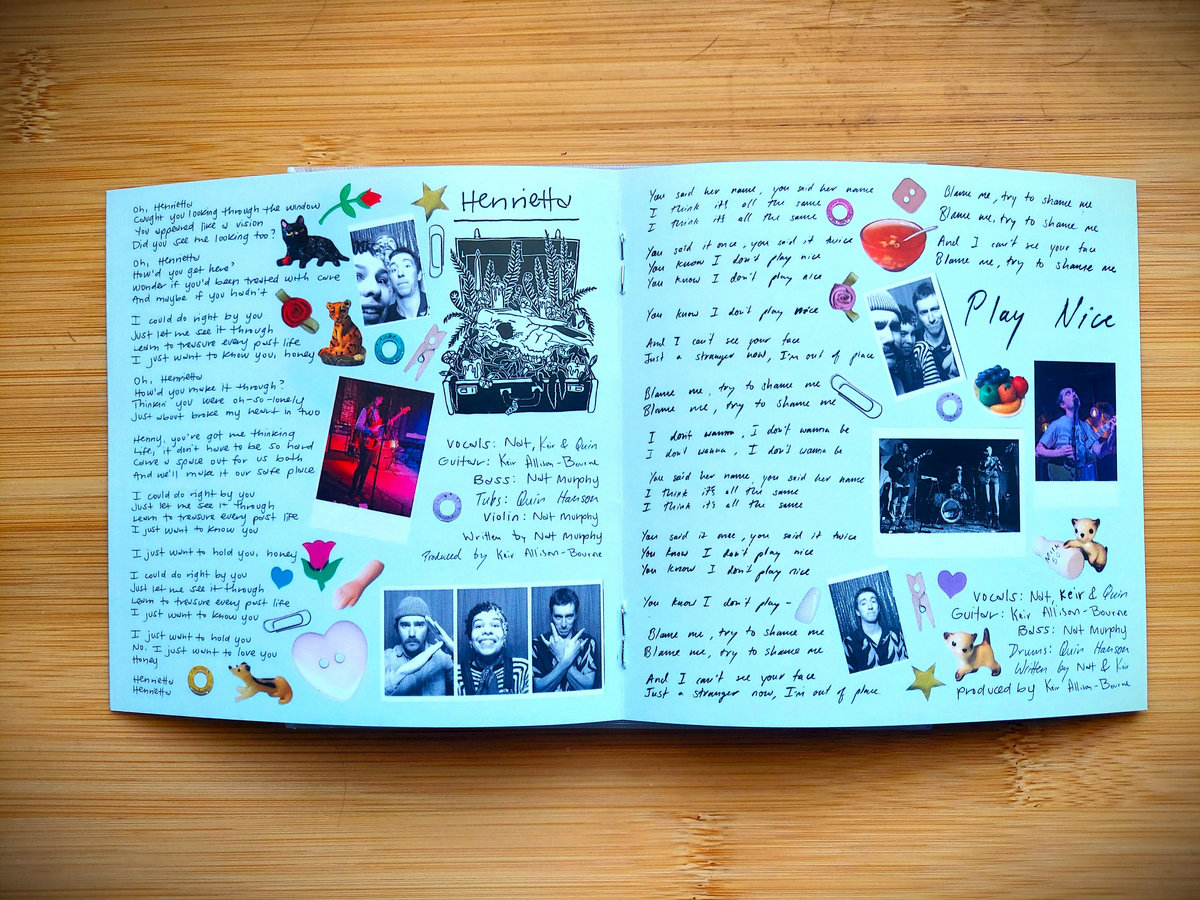 Oh, Henrietta
Caught you looking through the window
You appeared like a vision
Did you see me looking too?
Oh, Henrietta
How'd you get here?
Wonder if you'd been treated with care
And maybe if you hadn't
I could do right by you
Just let me see it through
Learn to treasure every past life
I just want to know you, honey
Oh, Henrietta
How'd you make it through?
Thinkin' you were oh-so-lonely
Just about broke my heart in two
Henny, you've got me thinking
Life, it don't have to be so hard
Carve a space out for us both
And we'll make it our safe place
I could do right by you
Just let me see it through
Learn to treasure every past life
I just want to know you
I just want to hold you, honey
I could do right by you
Just let me see it through
Learn to treasure every past life
I just want to know you
I just want to hold you
No, I just want to love you
Honey
Henrietta
Henrietta
Henrietta
Vocals: Nat, Keir & Quin
Guitar: Keir Allison-Bourne
Bass: Nat Murphy
Tubs: Quin Hanson
Violin: Nat Murphy
Written by Nat Murphy
Produced by Keir Allison-Bourne
You said her name, you said her name
I think it's all the same
I think it's all the same
You said it once, you said it twice
You know I don't play nice
You know I don't play nice
You know I don't play nice
And I can't see your face
Just a stranger now, I'm out of place
Blame me, try to shame me
Blame me, try to shame me
I don't wanna, I don't wanna be
I don't wanna, I don't wanna be
You said her name, you said her name
I think it's all the same
I think it's all the same
You said it once, you said it twice
You know I don't play nice
You know I don't play nice
You know I don't play-
Blame me, try to shame me
Blame me, try to shame me
And I can't see your face
Just a stranger now, I'm out of place.
Blame me, try to shame me
Blame me, try to shame me
And I can't see your face
Blame me, try to shame me
Play Nice
Milk
Vocals: Nat, Keir & Quin
Guitar: Keir Allison-Bourne
Bass: Nat Murphy
Drums: Quin Hanson
Written by Nat & Keir
produced by Keir Allison-Bourne